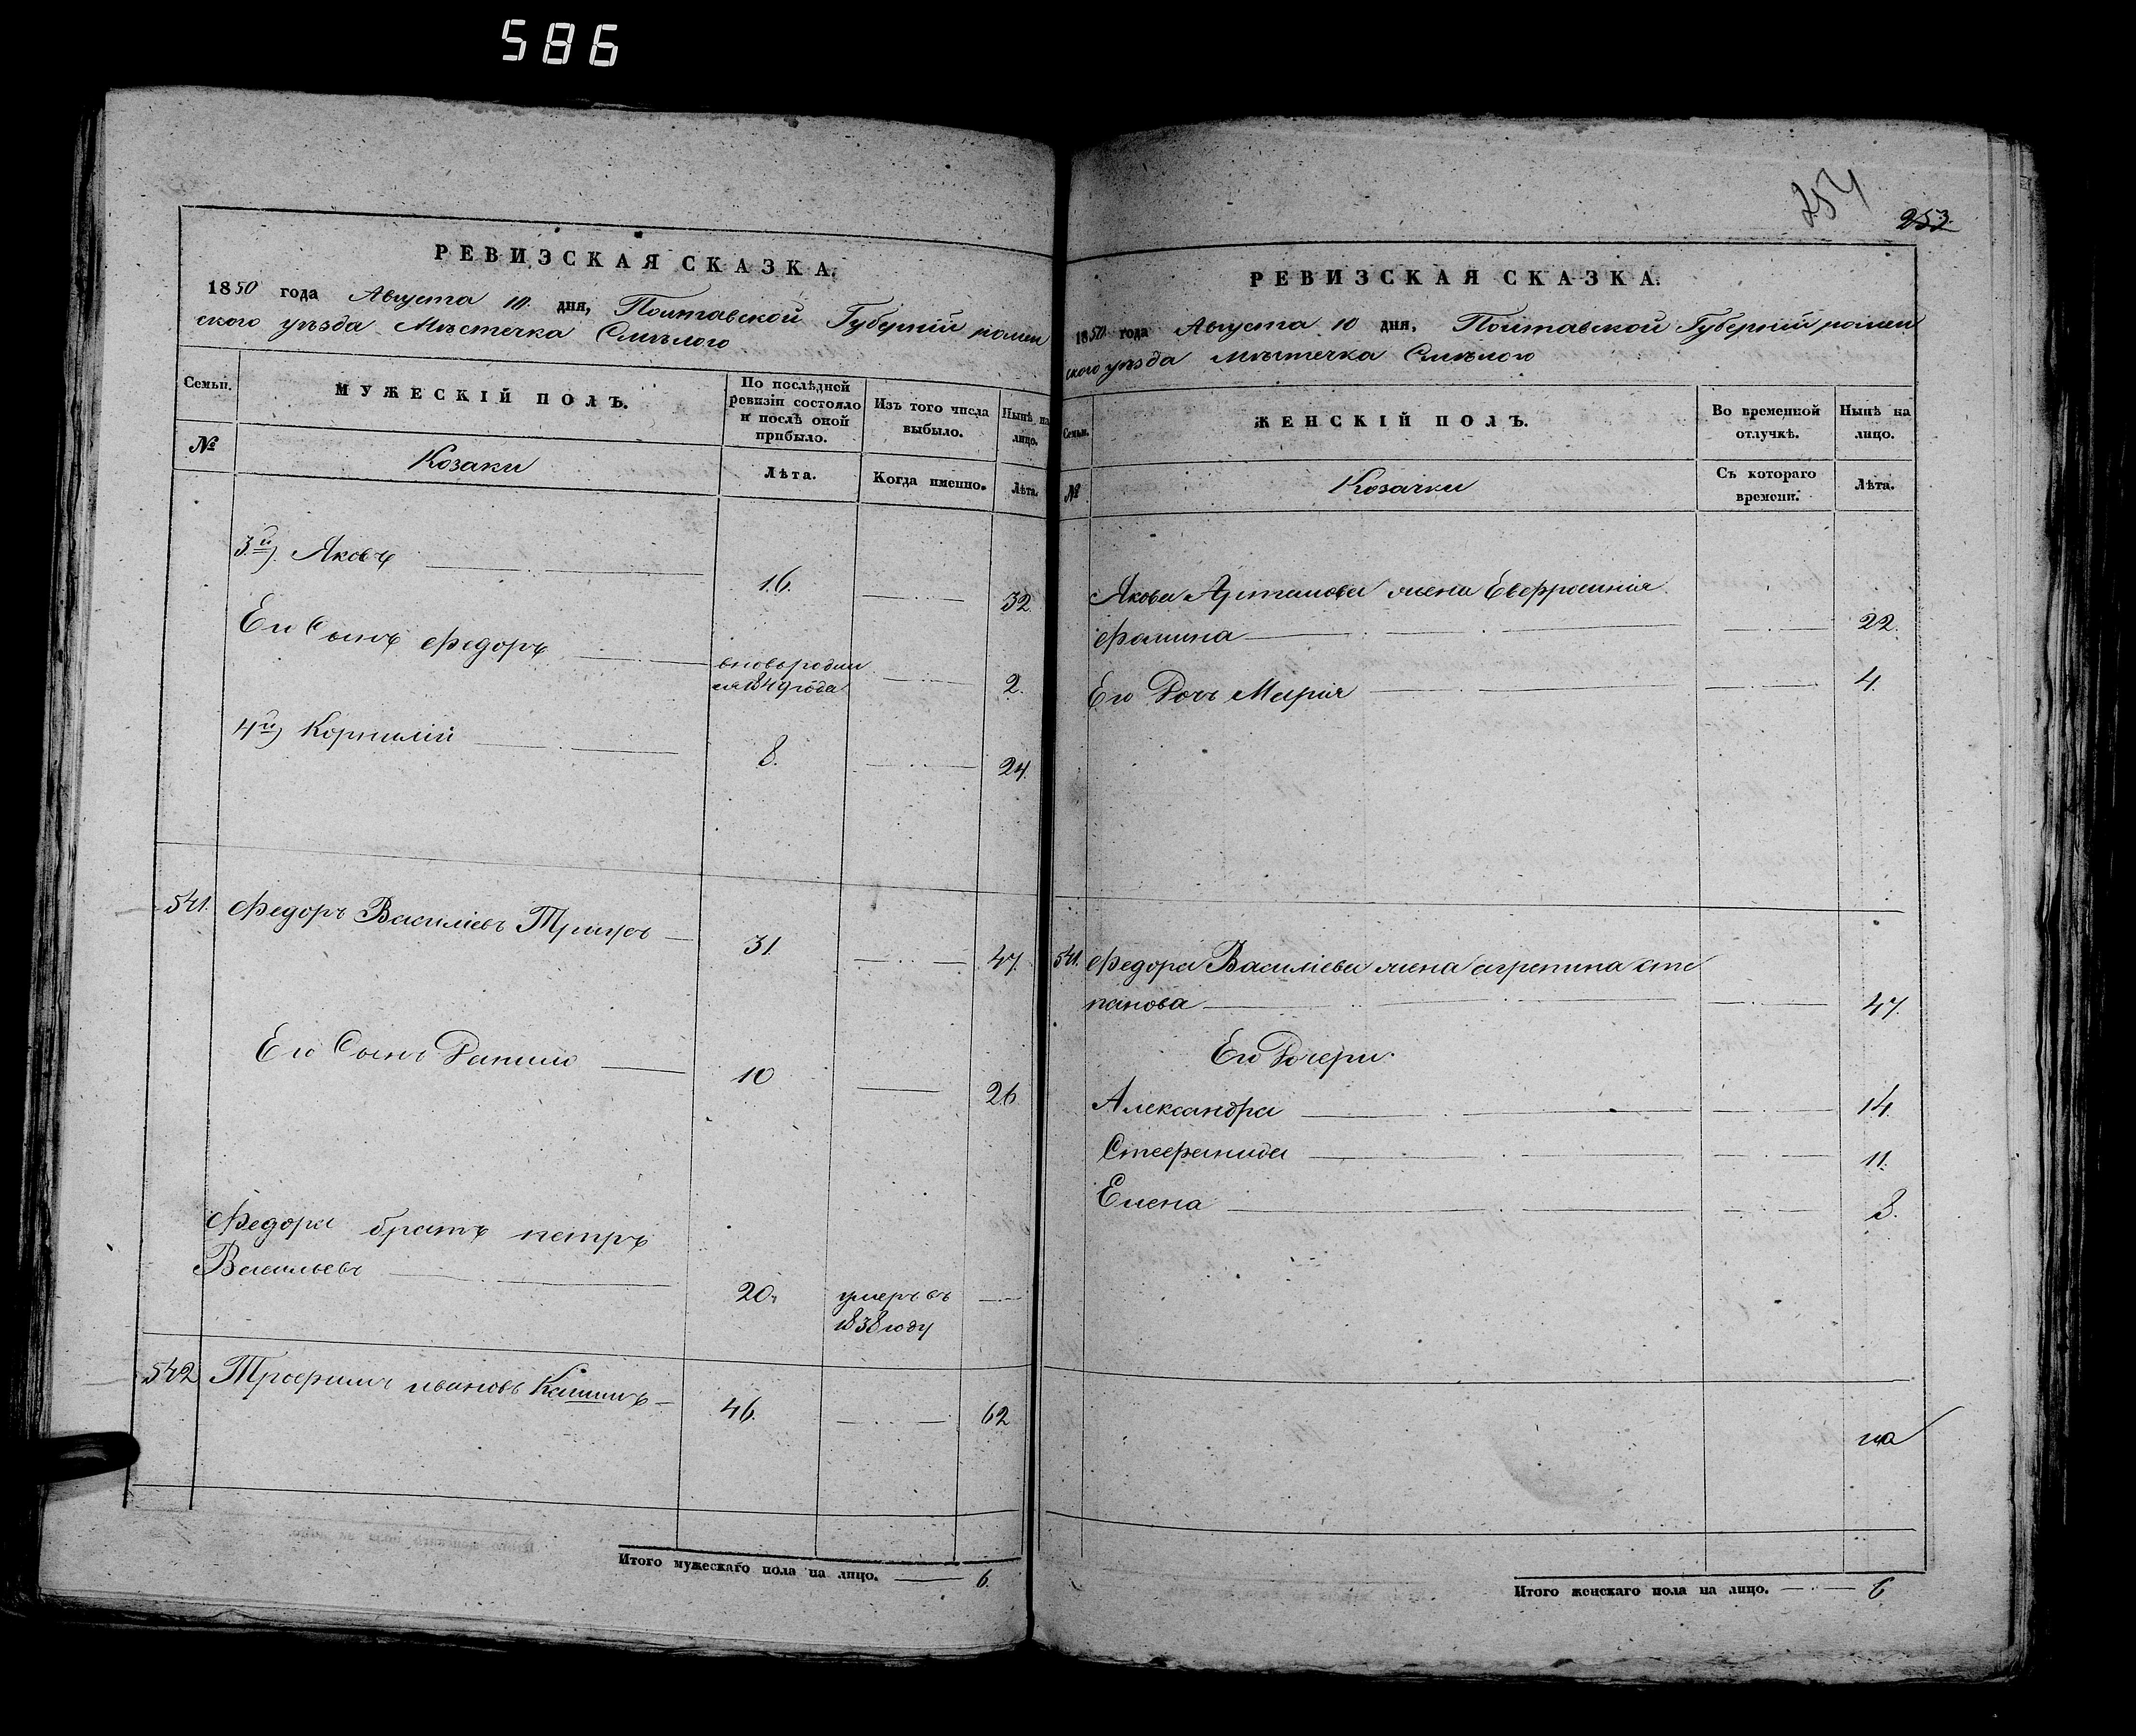 586
РЕВИЗСКАЯ СКАЗКА.
1850 года Августа 10 дня, Полтавской Губерніи ромен
ского уѣзда Мѣстечка Смѣлого
Семьи.
МУЖЕСКІЙ ПОЛЪ.
По послѣдней
ревизіи состояло
и послѣ оной
прибыло.
Изъ того числа
выбыло.
Нынѣ на
лицо.
№
Козаки
Лѣта.
Когда именно.
Лѣта.
3й) Яковъ
16.
32
Его Сынъ Федоръ
вновь родил
ся 1849 года
2.
4й) Корнилій
8.
24.
541. Федоръ Василіевъ
31.
47.
Его Сынъ Данило
10
26
Федора братъ петръ
Васильевъ
20.
умеръ въ
1838 году
542 Трофимъ ивановъ
46.
62
Итого мужескаго пола на лицо. 6.
254
253.
РЕВИЗСКАЯ СКАЗКА.
1850 года Августа 10 дня, Полтавской Губерніи ромен
ского уѣзда Мѣстечка Смѣлого
Семьи.
ЖЕНСКІЙ ПОЛЪ.
Во временной
отлучкѣ.
Нынѣ на
лицо.
№
Козачки
Съ котораго
времени.
Лѣта.
Якова жена Евфросинія
22.
Его Дочь Марія
4.
541. Федора Василіева жена агрепина сте
панова
47.
Его Дочери.
Александра
14.
Стефанида
11.
Елена
8.
Итого женскаго пола на лицо. 6